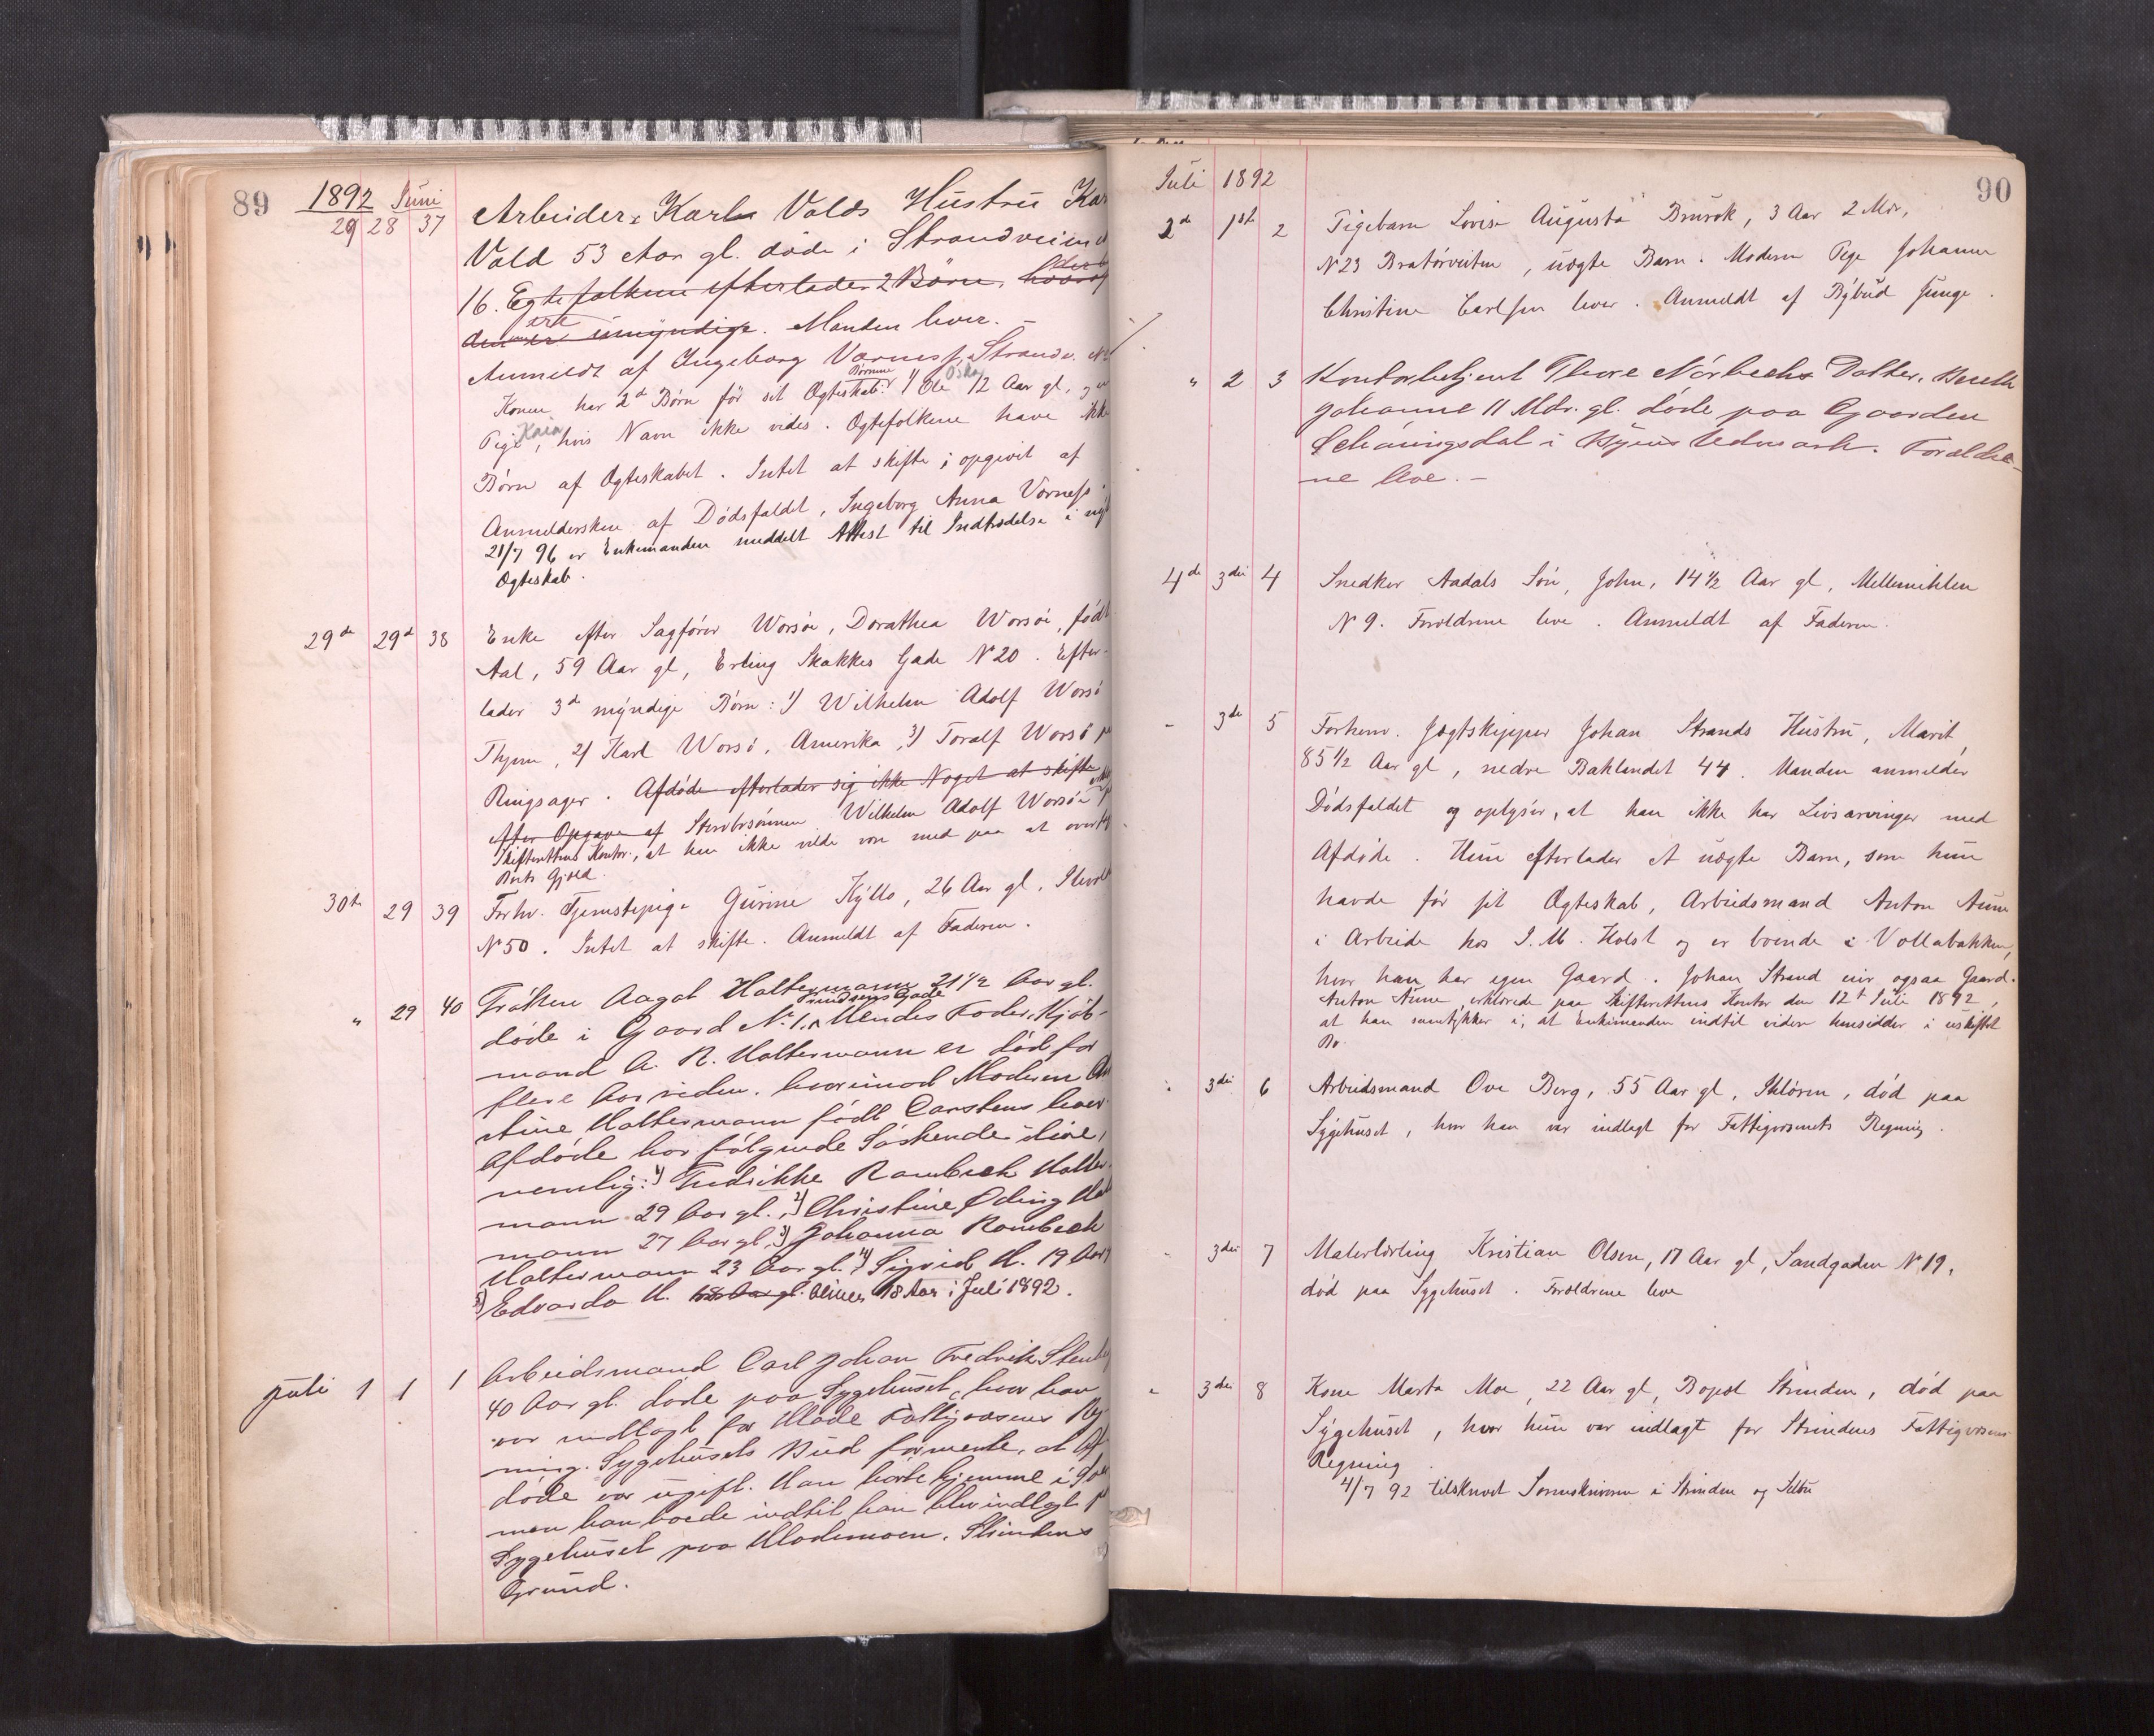 89
1892 Juni
29 28 37 Arbeider Karl Valds Hustru
Vald 53 Aar gl. døde i Strandveien
16. Egtefolkene efterlader 2 Børn,
ere umyndige. Manden lever. –
Anmeldt af Ingeborg Værnes, Strandv. No
Konen har 2de Børn før sit Ægteskab: Børnene 1) Ole Oskar 12 Aar gl, og en
Pige Kaia, hvis Navn ikke vides. Ægtefolkene have ikke
Børn af Ægteskabet. Intet at skifte; opgivet af
Anmeldersken af Dødsfaldet, Ingeborg Anna Værnes.
21/7 96 er Enkemanden meddelt Attest til Indtrædelse i nyt
Ægteskab.
29de 29d 38 Enke efter Sagfører Worsøe, Dorathea Worsøe, født
Aal, 59 Aar gl, Erling Skakkes Gade No 20. Efter-
lader 3de myndige Børn: 1) Wilhelm Adolf Worsø
2) Karl Worsø, Amerika, 3) Toralf Worsø
Ringsager. Afdøde efterlader sig ikke Noget at skifte
efter Opgave af Stervbosønnen Wilhelm Adolf Worsøe
Skifterettens Kontor, at han ikke vilde være med paa at overtage
Boets Gjæld.
30te 29 39 Forhv. Tjenestepige Gurine Hyllo, 26 Aar gl,
No 50. Intet at skifte. Anmeldt af Faderen.
" 29 40 Frøken Aagot Haltermann 21 1/2 Aar gl.
døde i Gaard No 1, Prindsens Gade. Hendes Fader, Kjøb-
mand A. R. Haltermann er død for
flere Aar siden, hvorimod Moderen
stine Haltermann født Carstens lever.
Afdøde har følgende Søskende ilive,
nemlig: 1) Fredrikke Rambech Halter-
mann 29 Aar gl., 2) Christine Øding Halter
mann 27 Aar gl, 3) Johanna Rambech
Haltermann 23 Aar gl. 4) Sigrid H. 19 Aar
5) Edvarda H. 18 Aar gl. bliver 18 Aar i Juli 1892.
Juli 1 1 1 Arbeidsmand Carl Johan Fredrik
40 Aar gl. døde paa Sygehuset, hvor han
var indlagt for Hlade Fattigvæsens Reg-
ning. Sygehusets Bud formente, at Af-
døde var ugift. Han hørte hjemme i
men han boede indtil han blev indlagt paa
Sygehuset paa Hlademoen, Strindens
Grund.
90
Juli 1892
2d 1ste 2 Pigebarn Lovise Augusta Brurok, 3 Aar 2 Mdr,
No 23 Bratørveiten, uægte Barn. Moderen Pige Johanne
Christine Carlsen lever. Anmeldt af Bybud Junge.
" 2 3 Kontorbetjent Thore Nørbechs Datter, Bereth
Johanne 11 Mdr. gl. døde paa Gaarden
Schøningsdal i Byens Udmark. Forældre-
ne leve. –
4de 3die 4 Snedker Aadals Søn, John, 14 1/2 Aar gl, Mellemihlen
No 9. Forældrene leve. Anmeldt af Faderen.
– 3de 5 Forhenv. Jægtskipper Johan Strands Hustru, Marit,
85 1/2 Aar gl, nedre Baklandet 44. Manden anmelder
Dødsfaldet og oplyser, at han ikke har Livsarvinger med
Afdøde. Hun efterlader et uægte Barn, som hun
havde før sit Ægteskab, Arbeidsmand Anton Aune
i Arbeide hos I. M. Holst og er boende i Vollabakken,
hvor han har egen Gaard. Johan Strand eier ogsaa Gaard.
Anton Aune, erklærede paa Skifterettens Kontor den 12te Juli 1892,
at han samtykker i, at Enkemanden indtil videre hensidder i uskiftet
Bo.
" 3die 6 Arbeidsmand Ove Berg, 55 Aar gl, Ihløren, død paa
Sygehuset, hvor han var indlagt for Fattigvæsenets Regning.
" 3die 7 Malerlærling Kristian Olsen, 17 Aar gl, Sandgaden No 19,
død paa Sygehuset. Forældrene leve
" 3die 8 Kone Marta Moe, 22 Aar gl, Bopæl Strinden, død paa
Sygehuset, hvor hun var indlagt for Strindens Fattigvæsens
Regning.
4/7 92 tilskrevet Sorenskriveren i Strinden og Selbu